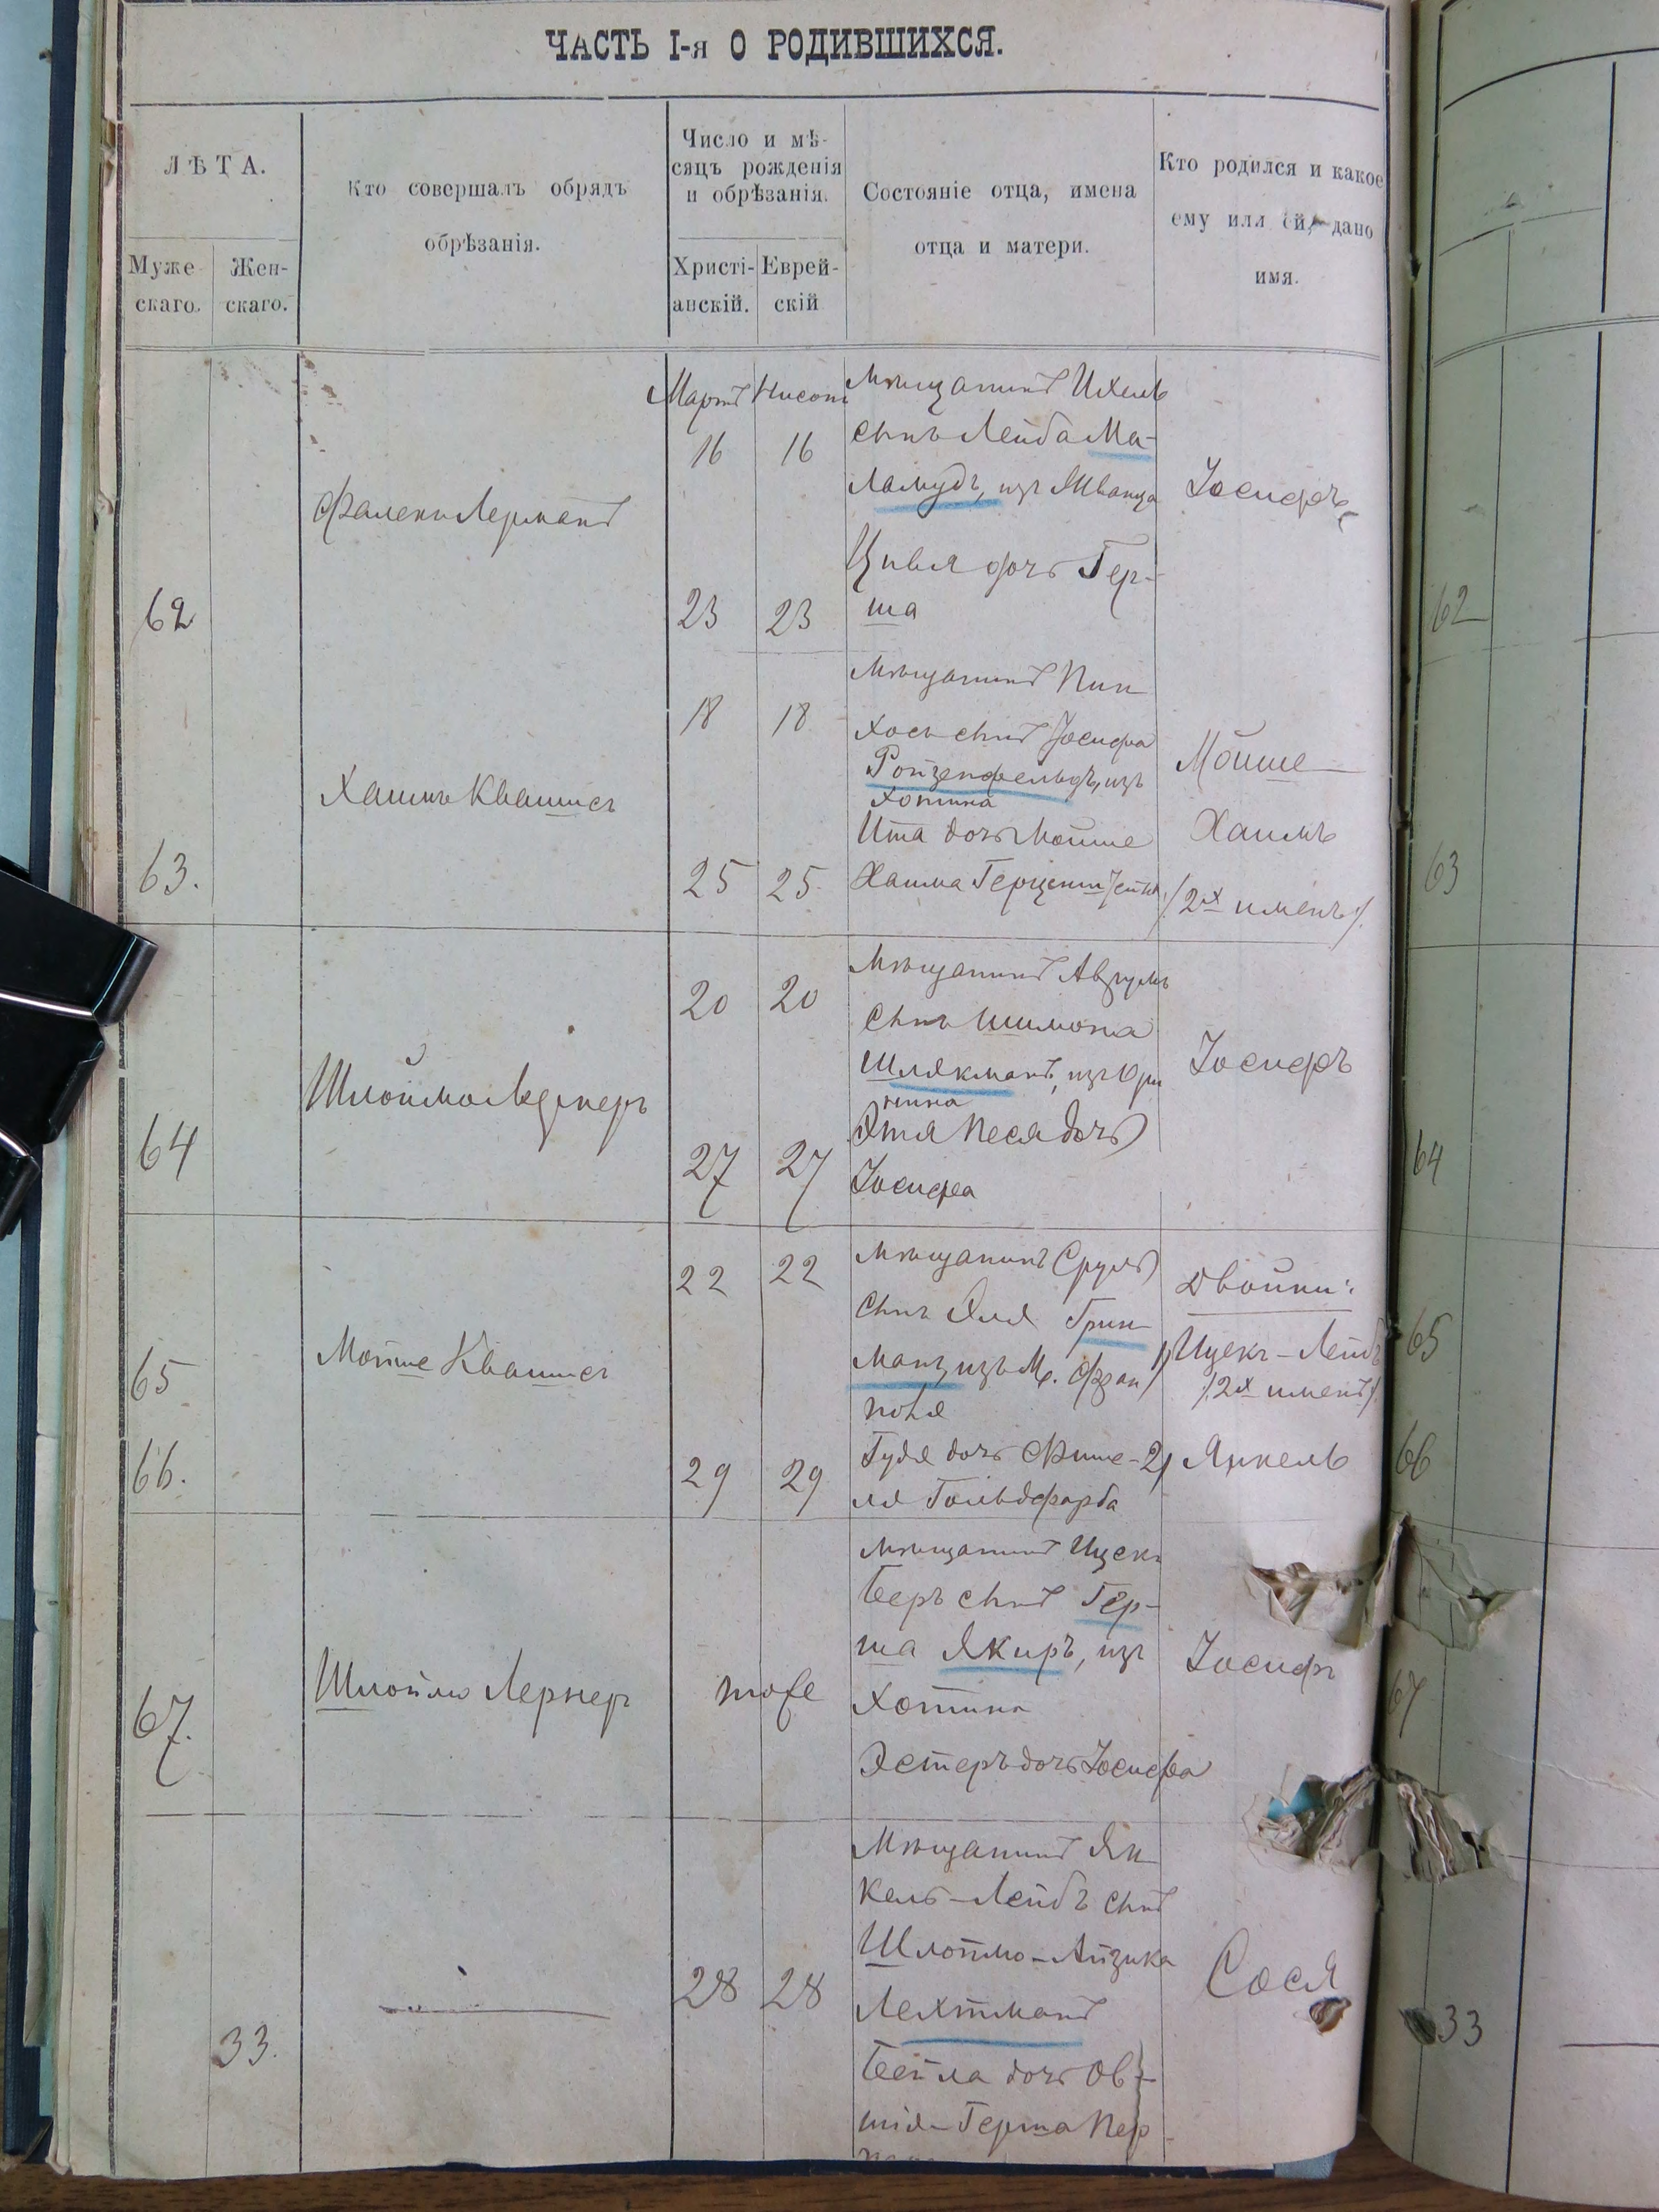 ЧАСТЬ I-я О РОДИВШИХСЯ.
ЛѢТА.
Муже
скаго.
Жен-
скаго.
Кто совершалъ обрядъ
обрѣзанія.
Число и мѣ-
сяцъ рожденія
и обрѣзанія.
Христі-
анскій.
Еврей-
скій
Состояніе отца, имена
отца и матери.
Кто родился и какое
ему или ей, дано
имя.
62
Лерманъ
Мартъ Нисонъ
16 16
23 23
мѣщанинъ Ихель
сынъ Лейба Ма-
ламудъ, изъ Жванца
Цивля дочь Гер-
ша
Іосифъ
62
63.
Хаимъ Квашисъ
18 18
25 25
мѣщанинъ Пин
хосъ сынъ Іосифа
Ройзенфельдъ, изъ
Хотина
Ита дочь Мойше
Хаима
Мойше
Хаимъ
/2х именъ/.
63
64
Шлоймо
20 20
27 27
мѣщанинъ Аврумъ
сынъ Шимона
Шлякманъ, изъ Ори
нина
Этя Песя дочь
Іосифа
Іосифъ
64
65
66.
Мойше Квашисъ
22 22
29 29
мѣщанинъ Сруль
сынъ Эля Грин
манъ изъ М. Фран
поля
Гудя дочь Фише-
ля Гольдфарба
Двойни:
1/ Ицекъ-Лейбъ
/2х именъ/.
2/ Янкель
65
66
67.
Шлоймо Лернеръ
тоже
мѣщанинъ Ицекъ
Беръ сынъ Гер-
ша Якиръ, изъ
Хотина
Эстеръ дочь Іосифа
Іосифъ
67
33.
28 28
Мѣщанинъ Ян
кель-Лейбъ сынъ
Шлоймо-Айзика
Лехтманъ
Бейла дочь Ов-
шія-Герша Пер
Сося
33